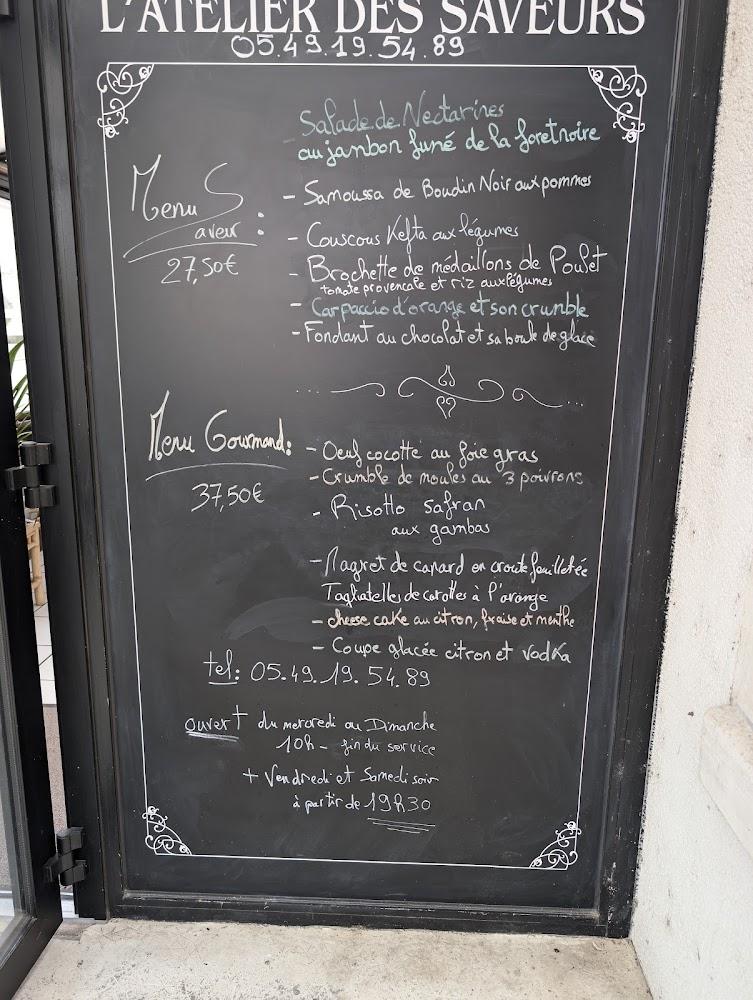 L'ATELIER DES SAVEURS
05.49.19.54.89
Salade de Nectarines
au jambon fumé de la foretnoire
Menu Saveur :
27,50€
- Samoussa de Boudin Noir aux pommes
- Couscous Kefta aux légumes
- Brochette de médaillons de Poulet
tomate provencale et riz aux légumes
- Carpaccio d'orange et son crumble
- Fondant au chocolat et sa boule de glace
Menu Gourmand:
37,50€
- Oeuf cocotte au foie gras
- Crumble de moules au 3 poivrons
- Risotto safran
aux gambas
- Magret de canard en croute feuilletée
Tagliatelles de carottes à l'orange
- cheese cake au citron, fraise et menthe
- Coupe glacée citron et vodka
tel: 05.49.19.54.89
ouvert du mercredi au Dimanche
10h - fin du service
+ Vendredi et Samedi soir
à partir de 19h30